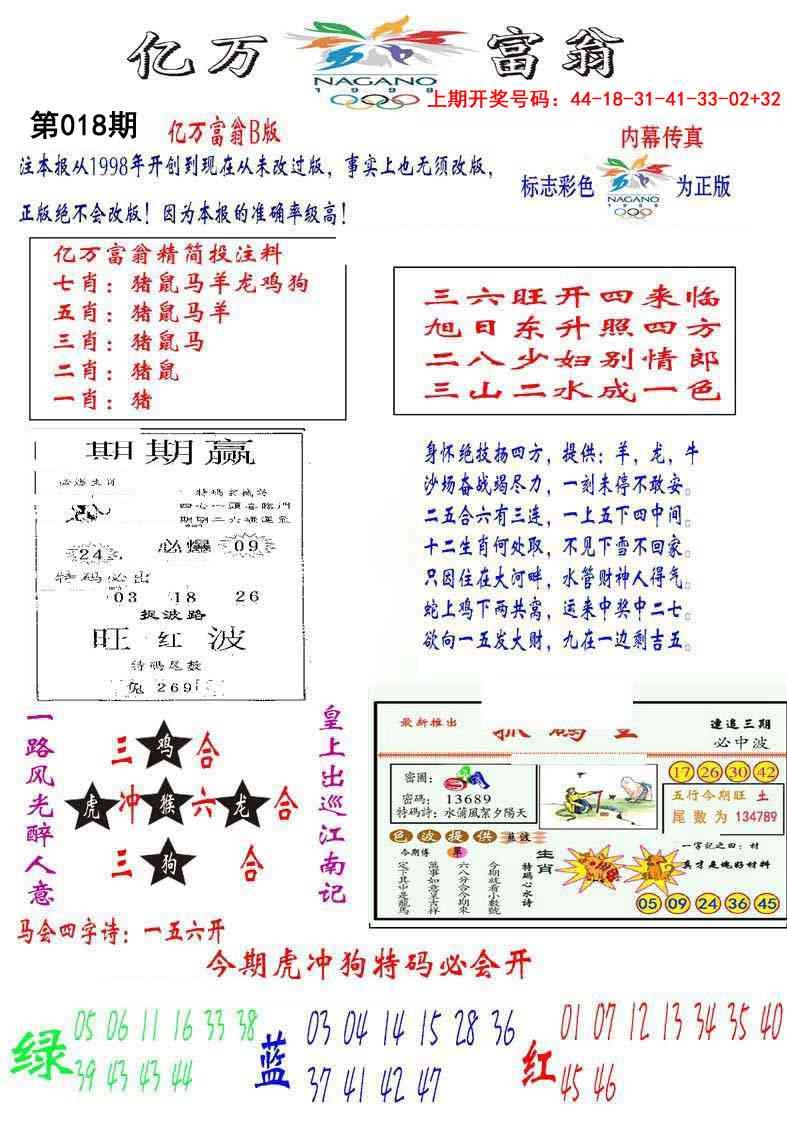 亿万 NAGANO 1998 富翁
上期开奖号码：44-18-31-41-33-02+32
第018期
亿万富翁B版
内幕传真
注本报从1998年开创到现在从未改过版，事实上也无须改版，
正版绝不会改版！因为本报的准确率级高！
标志彩色 NAGANO 1998 为正版
亿万富翁精简投注料
七肖：猪鼠马羊龙鸡狗
五肖：猪鼠马羊
三肖：猪鼠马
二肖：猪鼠
一肖：猪
三六旺开四来临
旭日东升照四方
二八少妇别情郎
三山二水成一色
期期赢
24 必爆 09
特码必出
03 18 26
捉波路
旺红波
特码尾数
兔 269
身怀绝技扬四方，提供：羊，龙，牛
沙场奋战竭尽力，一刻未停不敢安。
二五合六有三连，一上五下四中间。
十二生肖何处取，不见下雪不回家。
只因住在大河畔，水管财神人得气。
蛇上鸡下两共窝，运来中奖中二七。
欲向一五发大财，九在一边剩吉五。
一路风光醉人意
三 鸡 合
虎 冲 猴 六 龙 合
三 狗 合
皇上出巡江南记
马会四字诗：一五六开
最新推出
連追三期
必中波
密圖：
密碼：13689
特碼詩：水蒲風絮夕陽天
17 26 30 42
五行今期旺 土
尾数为 134789
色波提供 藍波
今期傳 單
今期就看小數號
六八分合今期來
萬事如意呈吉祥
定下其中是龍馬
生肖
特碼心水诗
一字记之曰：材
真才是塊好材料
05 09 24 36 45
今期虎冲狗特码必会开
绿 05 06 11 16 33 38
39 43 43 44
蓝 03 04 14 15 28 36
37 41 42 47
红 01 07 12 13 34 35 40
45 46